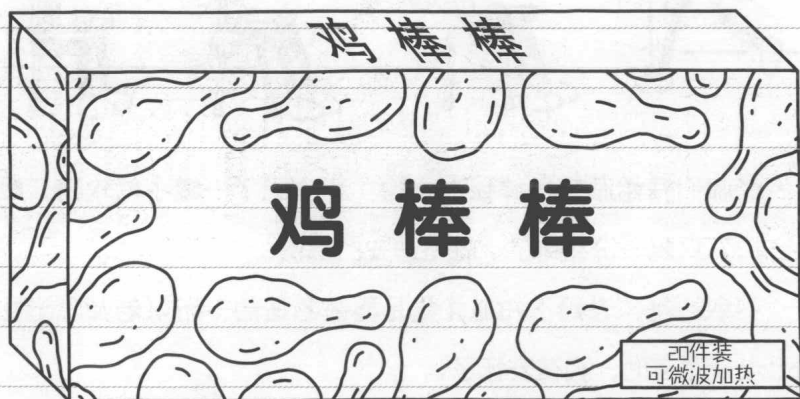 鸡棒棒
鸡棒棒
20件装
可微波加热